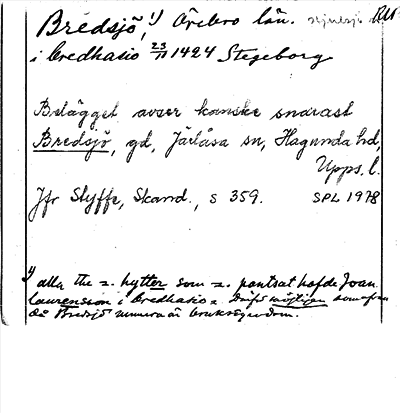 Bredsjö,¹) Örebro län. RA
i bredhasio 23/11 1424 Stegeborg
Belägget avser kanske snarast
Bredsjö, gd, Järlåsa sn, Hagunda hd,
Upps. l.
Jfr Styffe, Skand., s 359. SPL 1978
1) alla the z. hytter som z. pantsat hafde Joan
laurensson i bredhasio z.
då Bredsjö numera är bruksegendom.